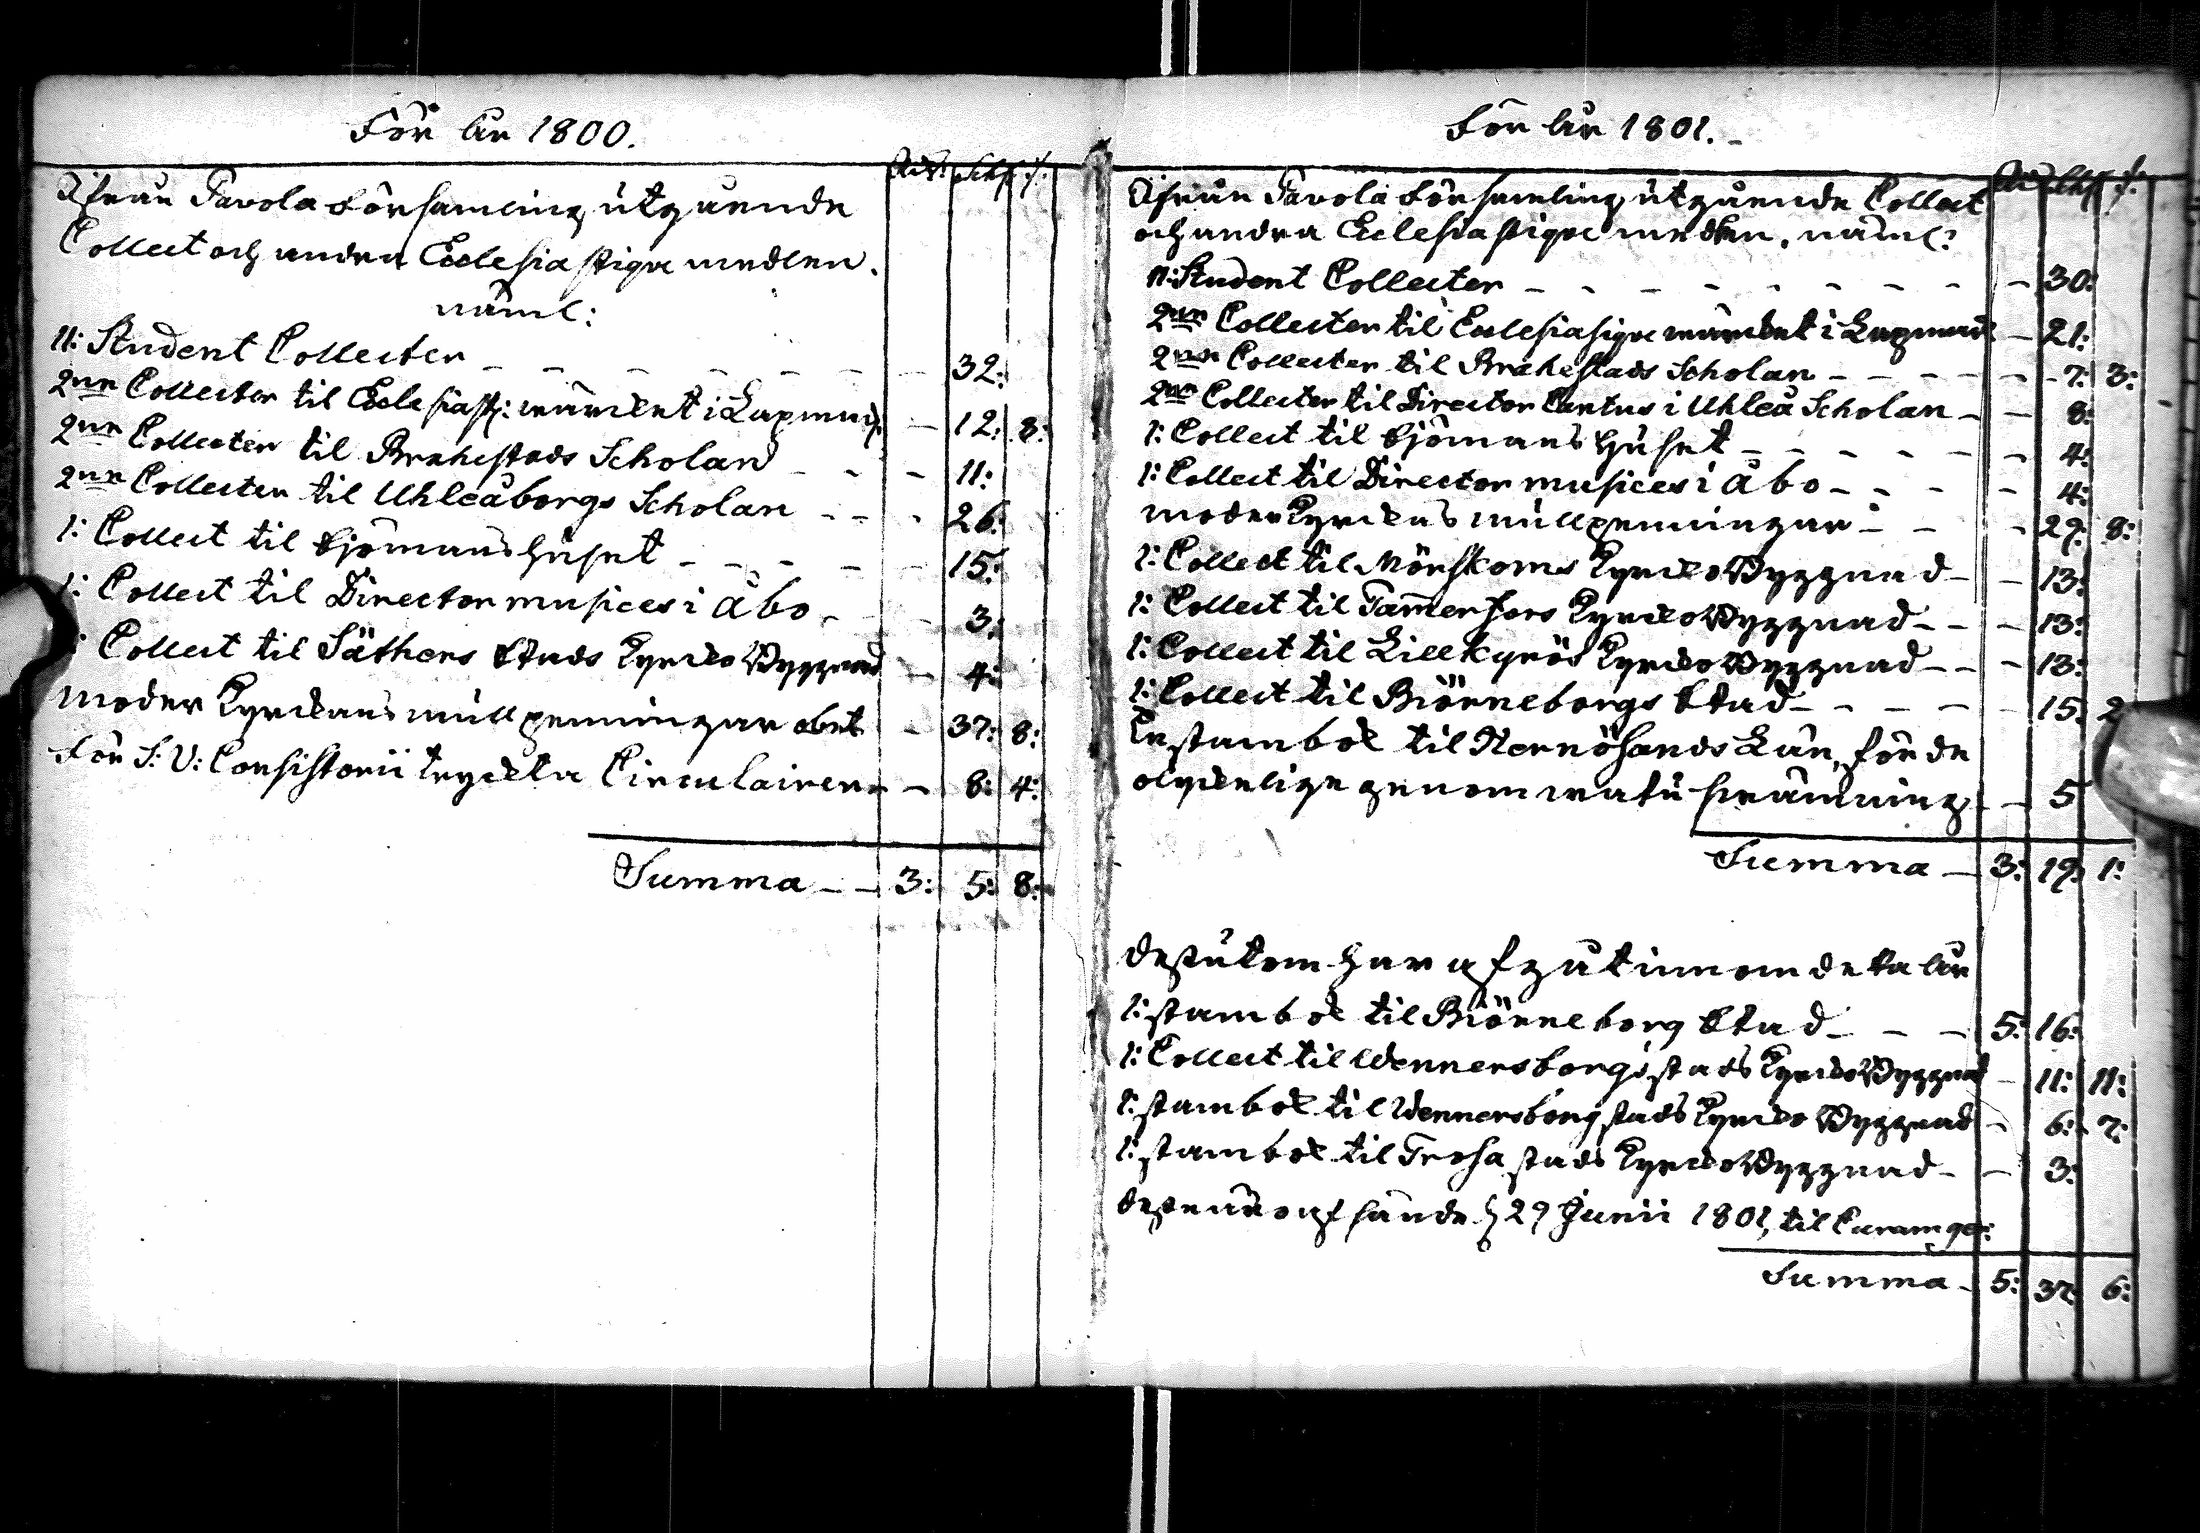 För År 1800.
Rd: Sch: r:
Ifrån Pavola Församling utgående
Collect och andra Ecclesiastique medlen.
näml:
11: Student Collecter - - - - 32:
2ne Collecter til Ecclesiast: wärcket i Lapmark: - 12: 8:
2ne Collecter til Brahestads Scholan - - - 11:
2ne Collecter til Uhleåborgs Scholan - - - 26:
1: Collect til Sjömans Huset - - - - 15:
1: Collect til Director musices i Åbo - - - 3:
1: Collect til Säthers Stads Kyrcko Byggnad - 4:
Moder Kyrckans mullpenningar - 37: 8:
För S: V: Consistorii tryckta Circulairer - - 8: 4:
Summa - - 3: 5: 8:
För År 1801. -
Rd Sch r:
Ifrån Pavola Församling utgående Collect
och andra Eclesiastique medlen, näml:
11: Student Collecter - - - - - - - - 30:
2ne Collecter til Ecclesiasique wärcket i Lapmark - 21:
2ne Collecter til Brahestads Scholan - - - - - 7: 3:
2ne Collecter til Director Cantus i Uhleå Scholan - - 8:
1: Collect til Sjömans Huset - - - - - - 4:
1: Collect til Director musices i Åbo - - - - 4:
Moder Kyrckans mullpenningar - - - 29: 8:
1: Collect til Mörskoms Kyrcko Byggnad - - 13:
1: Collect til Tamerfors Kyrcko Byggnad - - - 13:
1: Collect til Lillkyrö Kyrcko Byggnad - - - 13:
1: Collect til Biörneborgs Stad - - - - 15: 2
En stambok til Hernösands Län, för de
olyckelige genom watu skräming - - 5
Summa - 3: 19: 1:
Dessutom har afgåtinnom detta År
1: stambok til Biörneborg Stad - - - 5: 16:
1: Collect til Wennersborgs stads Kyrcko Byggnad - 11: 11:
1: stambok til Wennersborg stads Kyrcko Byggnad - 6: 7:
1: stambok til Trosa stads Kyrcko Byggnad - - 3:
afsände d 29 Junii 1801, til
Summa - 5: 37: 6: